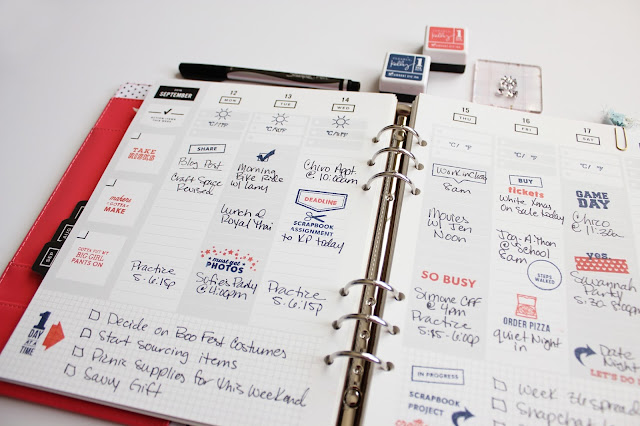 SEPTEMBER
12
MON
13
TUE
14
WED
°C/°F
°C/°F
°C/°F
TAKE
makers
GOTTA
MAKE
GOTTA PUT MY
BIG GIRL
PANTS ON
SEP
SHARE
Blog Post
Craft Space
Revised
Practice
5-6:15p
Morning
Bike Ride
w/ Tany
Lunch @
Royal Thai
must get
PHOTOS
Sofie's Party
@ 4:00pm
Practice
5-6:15p
Chiro Appt
@ 10:00am
DEADLINE
SCRAPBOOK
ASSIGNMENT
to KP today
Practice
5-6:15p
1
DAY
AT A
TIME
Decide on Boo Fest Costumes
Start sourcing items
Picnic supplies for this weekend
Savvy Gift
15
THU
16
FRI
17
SAT
°C/°F
°C/°F
°C/°F
8am
Movies
w/ Jen
Noon
SO BUSY
Simone OFF
@ 4pm
Practice
IN PROGRESS
SCRAPBOOK
PROJECT
BUY
tickets
White Xmas
on Sale today
Jog-A-Thon
@ School
8am
STEPS
WALKED
ORDER PIZZA
quiet Night
in
GAME
DAY
Chiro
@ 11:20a
YES
Savannah
Party
5:30-8:00pm
Date
Night
LET'S DO
Week 36 spread
Snapchat